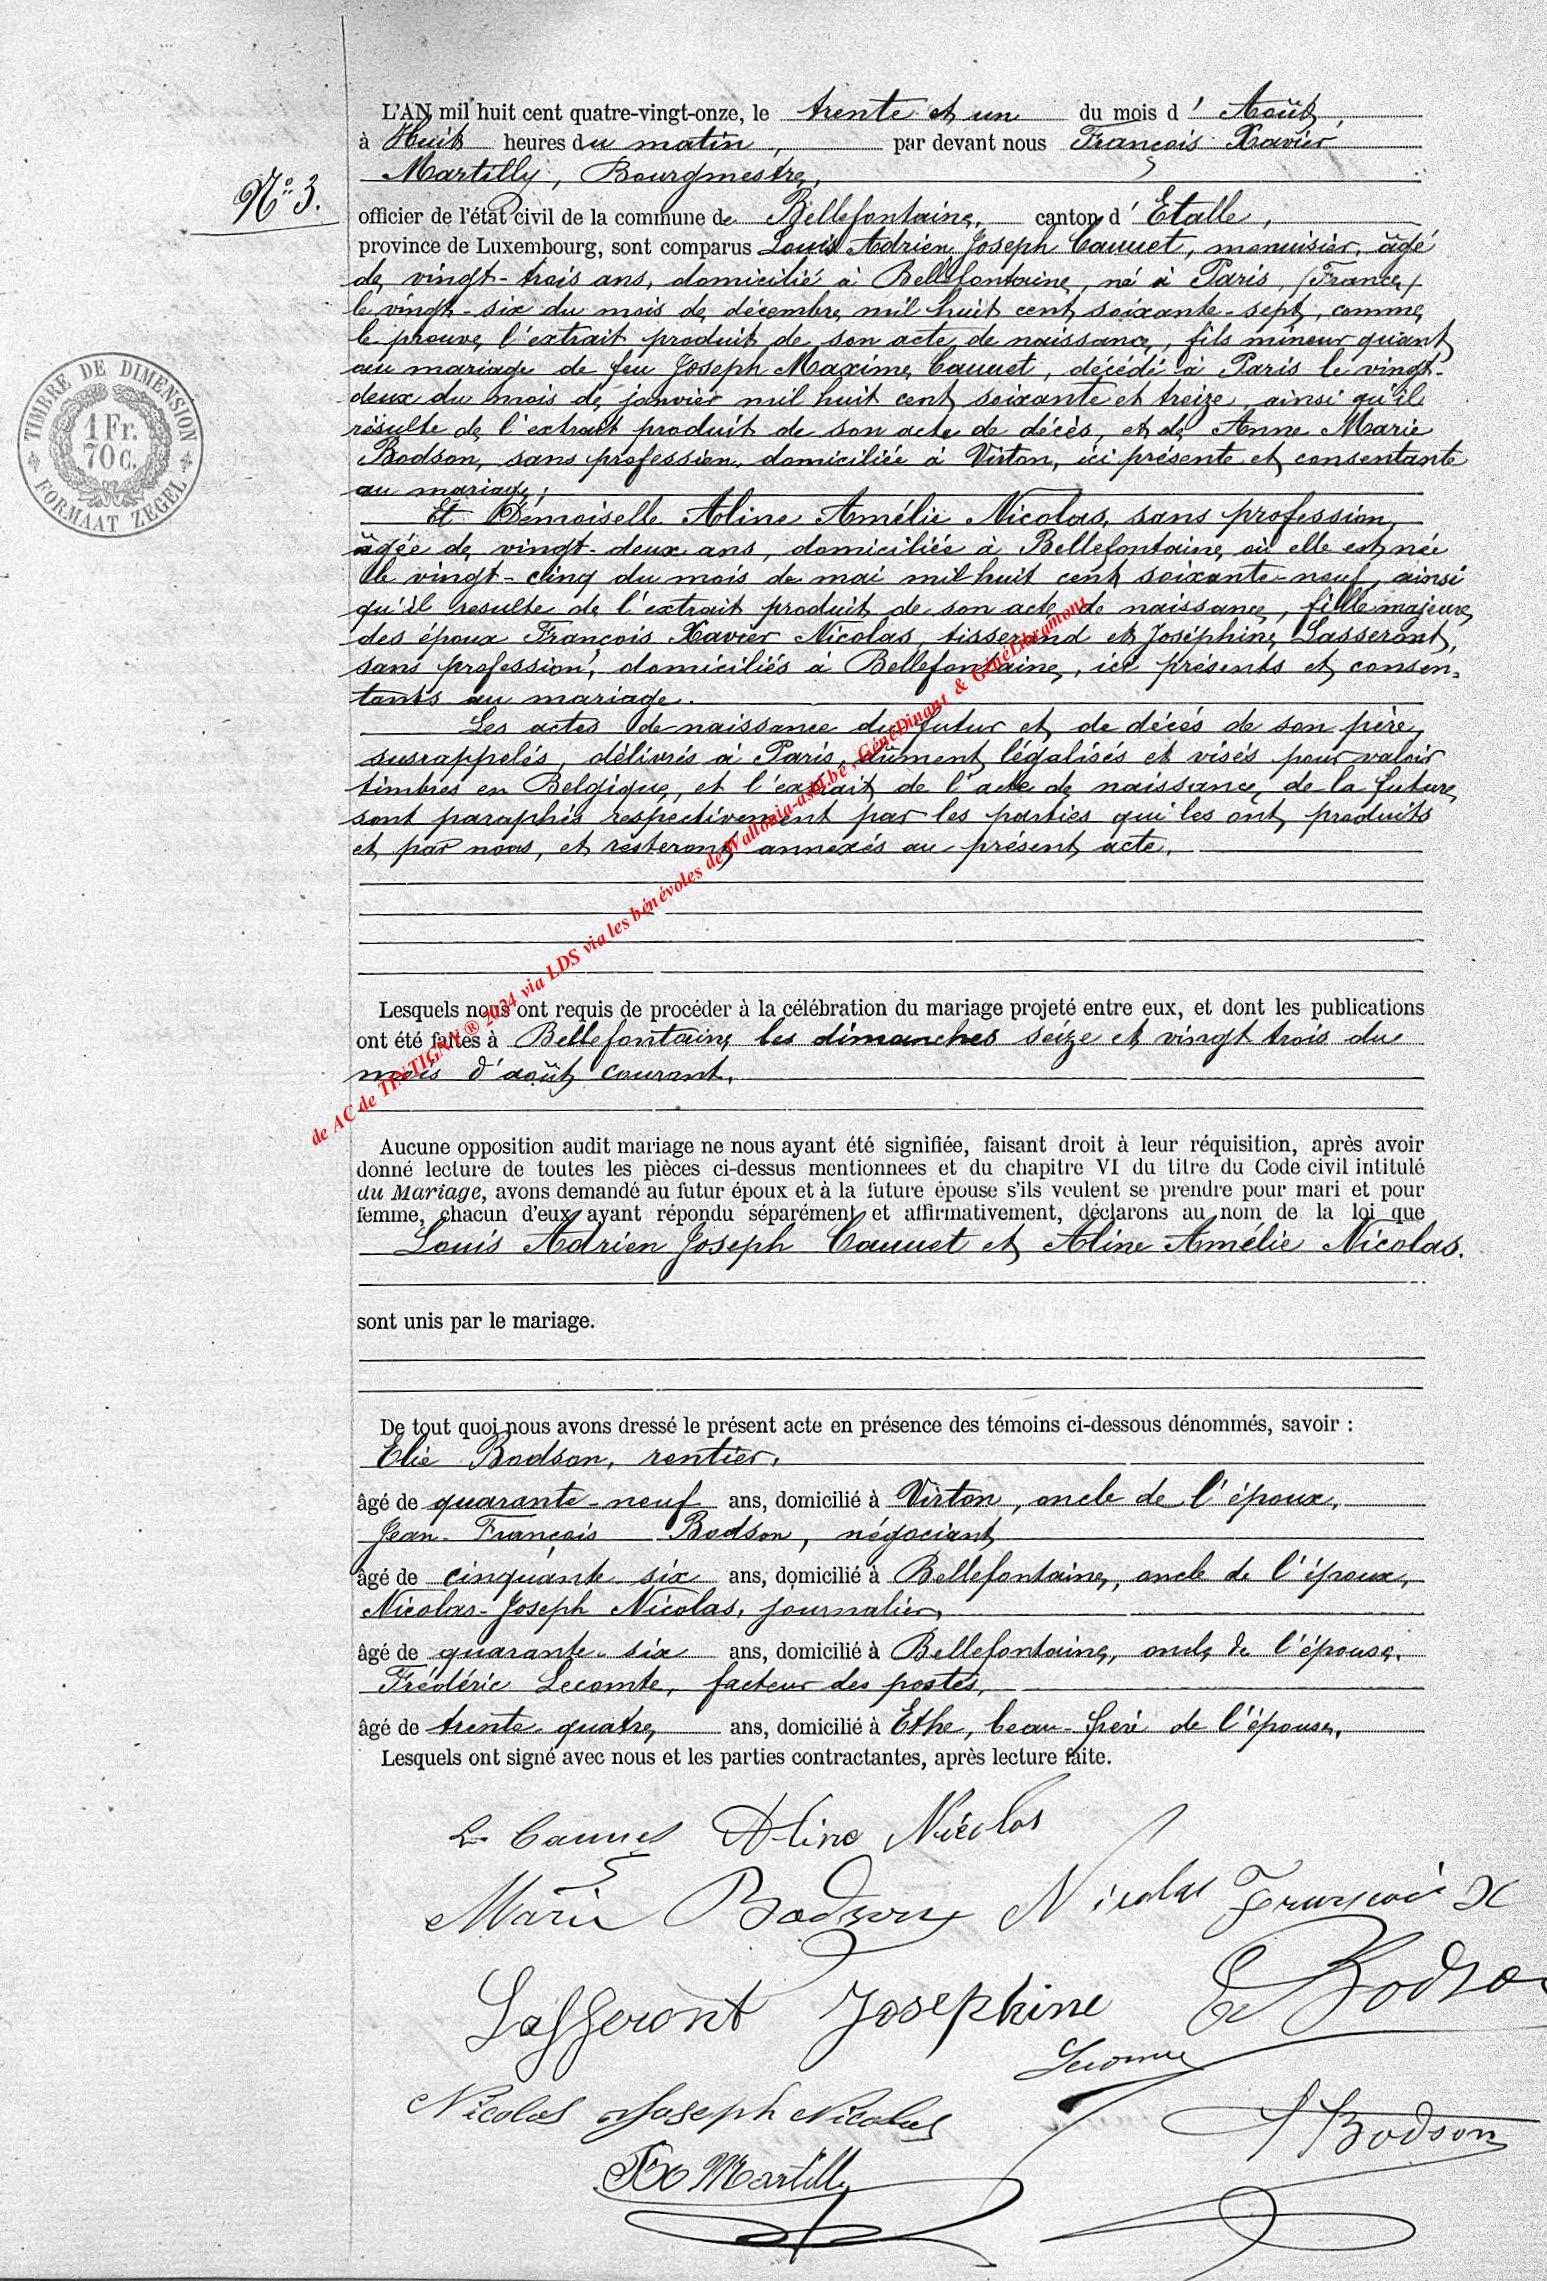 L'AN mil huit cent quatre-vingt-onze, le trente et un du mois d' Août,
à Huit heures du matin, par devant nous François Xavier
Martilly, Bourgmestre,
N° 3.
officier de l'état civil de la commune de Bellefontaine, canton d' Etalle,
province de Luxembourg, sont comparus Louis Adrien Joseph Cauuet, menuisier, âgé
de vingt-trois ans, domicilié à Bellefontaine, né à Paris, (France)
le vingt-six du mois de décembre mil huit cent soixante-sept, comme
le prouve l'extrait produit de son acte de naissance, fils mineur quant
au mariage de feu Joseph Maxime Cauuet, décédé à Paris le vingt-
deux du mois de janvier mil huit cent soixante et treize, ainsi qu'il
résulte de l'extrait produit de son acte de décès, et de Anne Marie
Bodson, sans profession, domiciliée à Virton, ici présente et consentante
au mariage;
Et Demoiselle Aline Amélie Nicolas, sans profession,
âgée de vingt-deux ans, domiciliée à Bellefontaine où elle est née
le vingt-cinq du mois de mai mil huit cent soixante-neuf, ainsi
qu'il resulte de l'extrait produit de son acte de naissance, fille majeure
des époux François Xavier Nicolas, tisserand et Joséphine Lasseront,
sans profession, domiciliés à Bellefontaine, ici présents et consen-
tants au mariage.
Les actes de naissance du futur et de décès de son père,
susrappelés, délivrés à Paris, dûment légalisés et visés pour valoir
timbres en Belgique, et l'extrait de l'acte de naissance de la future
sont paraphés respectivement par les parties qui les ont produits
et par nous, et resteront annexés au présent acte.
Lesquels nous ont requis de procéder à la célébration du mariage projeté entre eux, et dont les publications
ont été faites à Bellefontaine les dimanches seize et vingt trois du
mois d'août courant.
Aucune opposition audit mariage ne nous ayant été signifiée, faisant droit à leur réquisition, après avoir
donné lecture de toutes les pièces ci-dessus mentionnees et du chapitre VI du titre du Code civil intitulé
du Mariage, avons demandé au futur époux et à la future épouse s'ils veulent se prendre pour mari et pour
femme, chacun d'eux ayant répondu séparément et affirmativement, déclarons au nom de la loi que
Louis Adrien Joseph Cauuet et Aline Amélie Nicolas.
sont unis par le mariage.
De tout quoi nous avons dressé le présent acte en présence des témoins ci-dessous dénommés, savoir :
Elie Bodson, rentier,
âgé de quarante-neuf ans, domicilié à Virton, oncle de l'époux,
Jean-François Bodson, négociant
âgé de cinquante-six ans, domicilié à Bellefontaine, oncle de l'époux,
Nicolas-Joseph Nicolas, journalier,
âgé de quarante-six ans, domicilié à Bellefontaine, oncle de l'épouse,
Frédéric Lecomte, facteur des postes,
âgé de trente-quatre ans, domicilié à Ethe, beau-frère de l'épouse.
Lesquels ont signé avec nous et les parties contractantes, après lecture faite.
L Cauuet Aline Nicolas
Marie Bodson Nicolas François X
Lasseront Josephine E Bodson
Lecomte
Nicolas Joseph Nicolas Bodson
FX Martilly
TIMBRE DE DIMENSION
1 Fr.
70 C.
FORMAAT ZEGEL
de AC de TINTIGNY ® 2024 via LDS via les bénévoles de Wallonia-asbl.be , GénéDinant & GénéLibramont